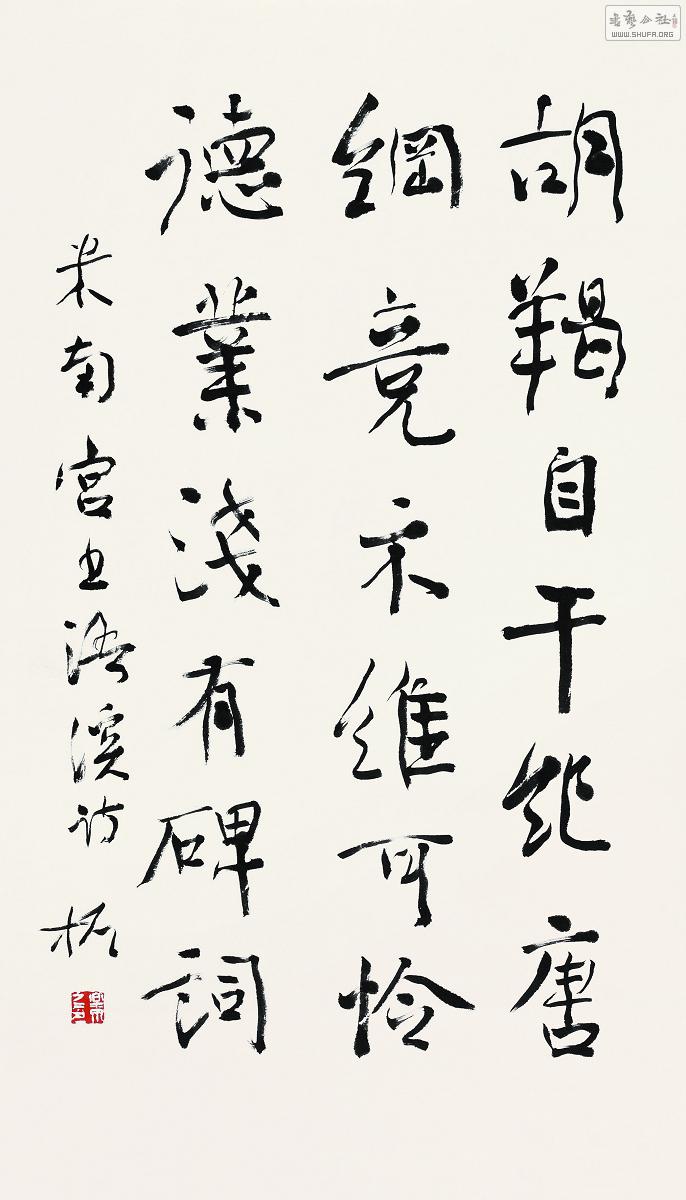 書藝公社
WWW.SHUFA.ORG
胡羯自干紀唐
綱竟不維可怜
德業淺有碑詞
米南宮浯溪詩